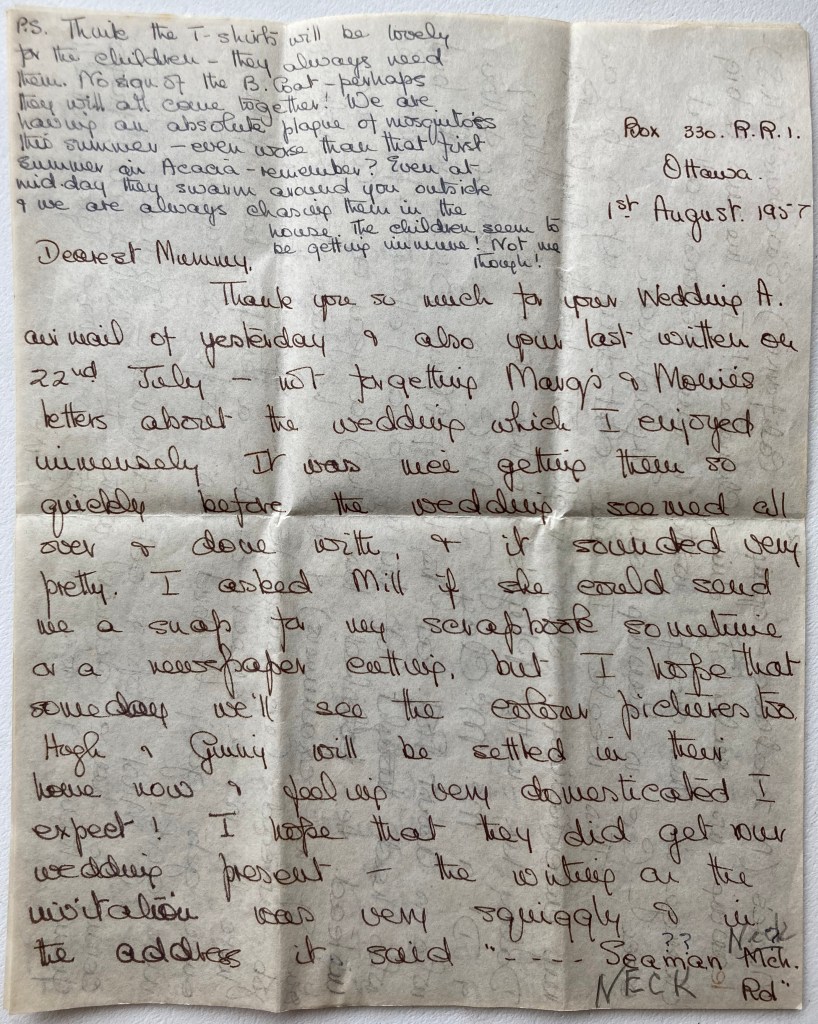 P.S. Think the T-shirts will be lovely
for the children - they always need
them. No sign of the B. Coat - perhaps
they will all come together! We are
having an absolute plague of mosquitoes
this summer - even worse than that first
summer on Acacia - remember? Even at
mid-day they swarm around you outside
& we are always chasing them in the
house. The children seem to
be getting immune! Not me
though!
Box 330. R.R.1.
Ottawa.
1st August. 1957
Dearest Mummy,
Thank you so much for your Wedding A.
air mail of yesterday & also your last written on
22nd July - not forgetting Margs & Monies
letters about the wedding which I enjoyed
immensely It was nice getting them so
quickly before the wedding seemed all
over & done with, & it sounded very
pretty. I asked Mill if she could send
me a snap for my scrapbook sometime
or a newspaper cutting, but I hope that
someday we'll see the colour pictures too.
Hugh & Ginny will be settled in their
home now & feeling very domesticated I
expect! I hope that they did get our
wedding present - the writing on the
invitation was very squiggly & in
the address it said "----- Seaman Mch.
?? Neck
NECK Rd"